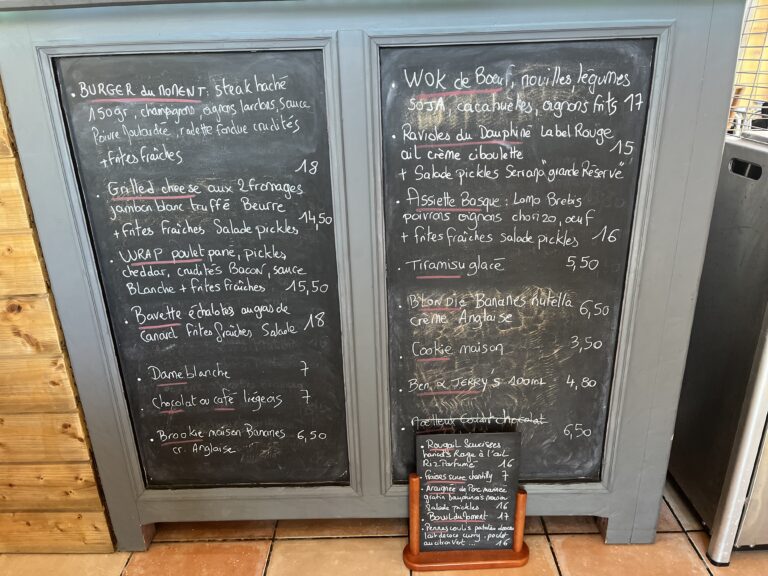 . BURGER du MOMENT: steak haché
150gr, champignons oignons lardons, sauce
Poivre, raclette fondue crudités
+ frites fraîches 18
. Grilled cheese aux 2 fromages
jambon blanc truffé Beurre
+ frites fraîches Salade pickles 14,50
. WRAP poulet pané, pickles
cheddar, crudités Bacon, sauce
Blanche + frites fraîches 15,50
. Bavette échalotes au gras de
canard frites fraîches Salade 18
. Dame blanche 7
. Chocolat ou café liégeois 7
. Brookie maison Bananes 6,50
cr. Anglaise
. WOK de Bœuf, nouilles, légumes
SOJA, cacahuètes, oignons frits 17
. Ravioles du Dauphiné Label Rouge
ail crème ciboulette 15
+ Salade pickles Seriano "grande Réserve"
. Assiette Basque: Lomo Brebis
poivrons oignons chorizo, oeuf
+ frites fraîches salade pickles 16
. Tiramisu glacé 5,50
. Blondie Bananes nutella 6,50
crème Anglaise
. Cookie maison 3,50
. Ben & JERRY'S 100mL 4,80
. Moelleux Coulant chocolat 6,50
. Rougail Saucisses
haricots Rouge à l'ail
Riz Parfumé 16
. fraises sucre chantilly 7
. Araignée de Porc marinée
gratin dauphinois maison
Salade pickles 16
. Bowl du Moment 17
. Pennes coulis patates douces
lait de coco curry, poulet
au citron vert ... 16